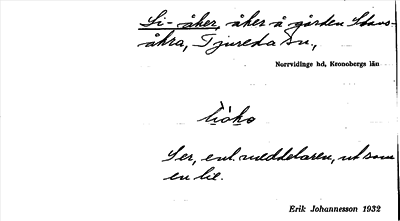 Li-åker, åker å gården Stavs-
åkra, Tjureda sn.,
Norrvidinge hd, Kronobergs län
Ser, enl. meddelaren, ut som
en lie.
Erik Johannesson 1932